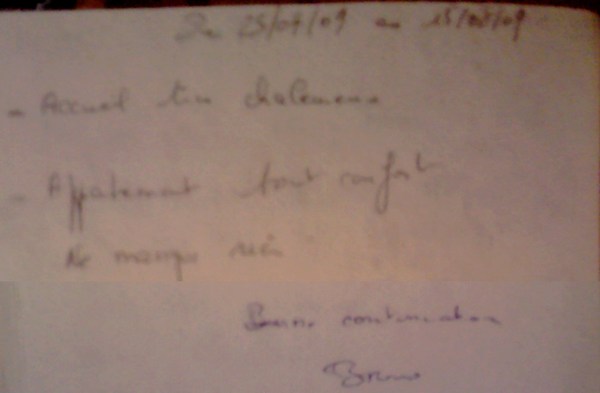 Du 25/07/09 au 15/08/09
- Accueil très chaleureux
- Appartement tout confort
Ne manque rien
Bonne continuation
Bruno